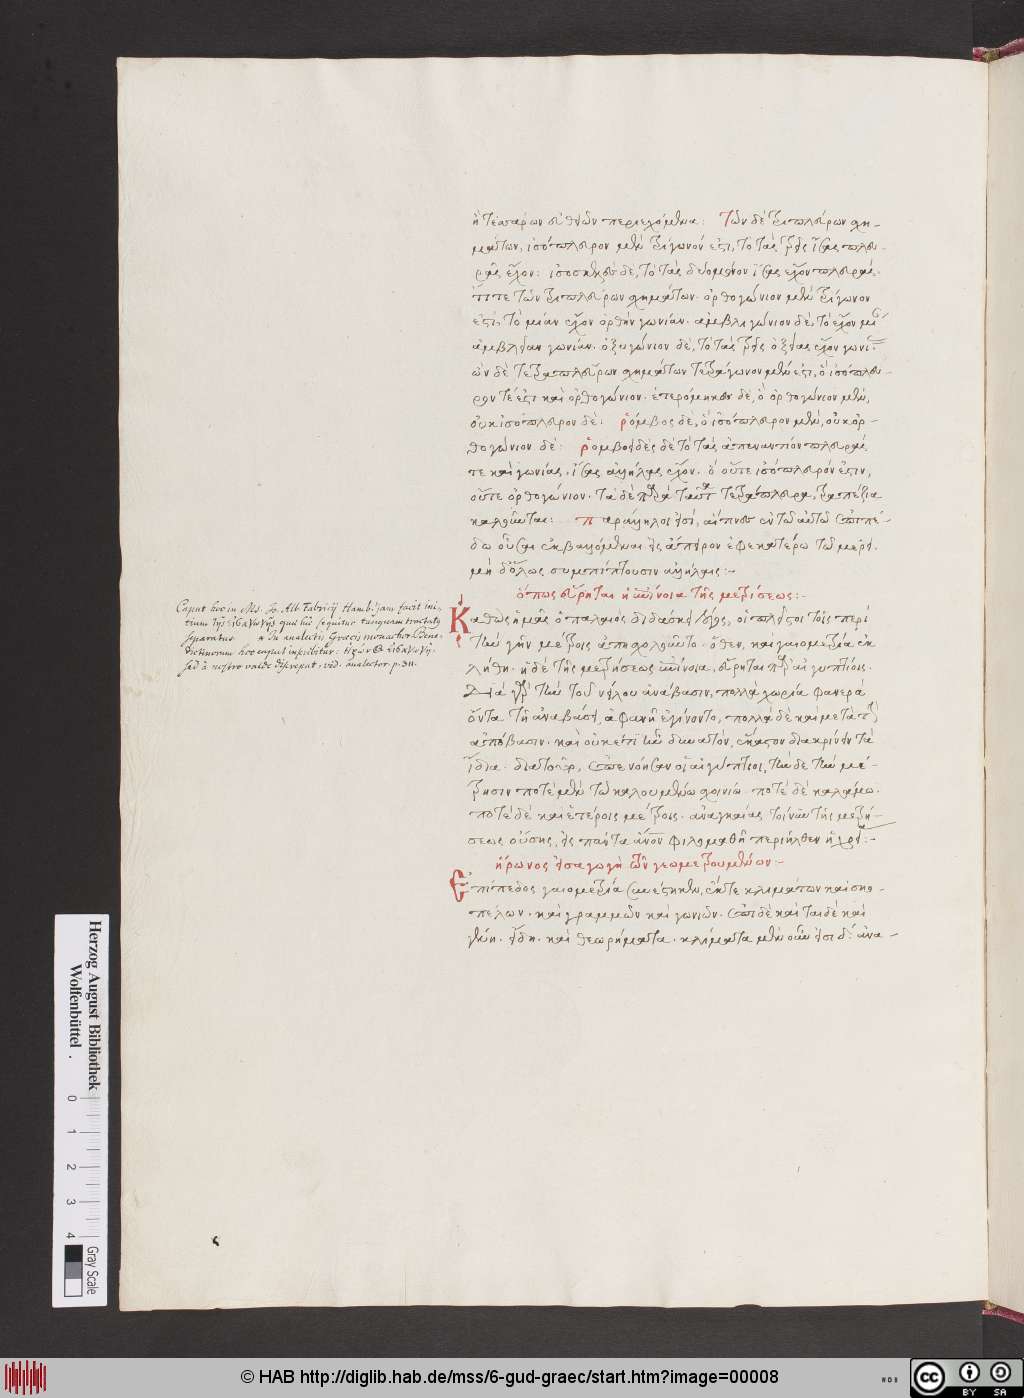 ἢ τεσσάρων εὐθειῶν περιεχόμενα: Τῶν δὲ τριπλεύρων σχη-
μάτων, ἰσόπλευρον μὲν τρίγωνόν ἐστι, τὸ τὰς τρεῖς ἴσας πλευ-
ρὰς ἔχον: ἰσοσκελὲς δὲ, τὸ τὰς δύο μόνον ἴσας ἔχον πλευράς.
ἔτι τε τῶν τριπλεύρων σχημάτων. ὀρθογώνιον μὲν τρίγωνον
ἐστι, τὸ μίαν ἔχον ὀρθὴν γωνίαν. ἀμβλυγώνιον δὲ, τὸ ἔχον μίαν
ἀμβλεῖαν γωνίαν. ὀξυγώνιον δὲ, τὸ τὰς τρεῖς ὀξείας ἔχον γωνίας.
ῶν δὲ τετραπλεύρων σχημάτων τετράγωνον μέν ἐστι, ὃ ἰσόπλευ-
ρον τέ ἐστι καὶ ὀρθογώνιον. ἑτερόμηκες δὲ, ὃ ὀρθογώνιον μὲν,
οὐκ ἰσόπλευρον δὲ: ῥόμβος δὲ, ὃ ἰσόπλευρον μὲν, οὐκ ὀρ-
θογώνιον δέ: ῥομβοειδὲς δὲ τὸ τὰς ἀπεναντίον πλευράς
τε καὶ γωνίας. ἴσας ἀλλήλαις ἔχον. ὃ οὔτε ἰσόπλευρόν ἐστιν,
οὔτε ὀρθογώνιον. τὰ δὲ παρὰ ταῦτα τετράπλευρα, τραπέζια
καλοῦνται: παράλληλοι εἰσί, αἵτινες ἐν τῶ αὐτῶ ἐπιπέ-
δω οὖσαι ἐκβαλλόμεναι εἰς ἄπειρον ἐφ' ἑκατέρω τῶ μέρει.
μὴ δ' ὅλως συμπίπτουσιν ἀλλήλαις:-
ὅπως εὕρηται ἡ ἐπίνοια τῆς μετρήσεως:-
Καθὼς ἡμᾶς ὁ παλαιὸς διδάσκει λόγος, οἱ πλεῖστοι τοῖς περὶ
τὴν γῆν μέτροις ἀπησχολοῦντο. ὅθεν, καὶ γαιομετρία ἐκ
λήθη. ἡ δὲ τῆς μετρήσεως ἐπίνοια, εὕρηται παρ' αἰγυπτίοις.
Διὰ γὰρ τὴν τοῦ νείλου ἀνάβασιν, πολλὰ χωρία φανερὰ
ὄντα τῆ ἀναβάσει, ἀφανῆ ἐγίνοντο, πολλὰ δὲ καὶ μετὰ τὴν
ἀπόβασιν. καὶ οὐκέτι ἦν δυνατὸν, ἕκαστον διακρίνειν τὰ
ἴδια. διατοῦτο, ἐπενόησαν οἱ αἰγύπτιοι, τήνδε τὴν μέ-
τρησιν ποτὲ μὲν τῶ καλουμένω σχοινίω. ποτὲ δὲ καλάμω.
ποτὲ δὲ καὶ ἑτέροις μέτροις. ἀναγκαίας τοίνυν τῆς μετρή-
σεως οὔσης, εἰς πάντα ἄνθρωπον φιλομαθῆ περιῆλθεν ἡ χρεία:-
ἥρωνος εἰσαγωγὴ τῶν γεωμετρουμένων:-
Ἐπίπεδος γαιομετρία συνέστηκεν, ἔκ τε κλιμάτων καὶ σκο-
πέλων. καὶ γραμμῶν καὶ γωνιῶν. ἐπιδέχεται δὲ καὶ
γένη. εἴδη. καὶ θεωρήματα. κλίματα μὲν οὖν εἰσι δ'. ἀνα-
Caput hoc in Ms. Jo. Alb. Fabricij Hamb. jam facit ini-
tium τῆς εἰσαγωγῆς quae hic sequitur tanquam tractatus
separatus. * In analectis Graecis monachor. Bene-
dictinorum hoc caput inscribitur: ἥρωνος εἰσαγωγή.
sed à nostro valde discrepat. vid. analector. p. 311.
Herzog August Bibliothek
Wolfenbüttel .
0 1 2 3 4
Gray Scale
© HAB http://diglib.hab.de/mss/6-gud-graec/start.htm?image=00008
WDB
cc
BY SA